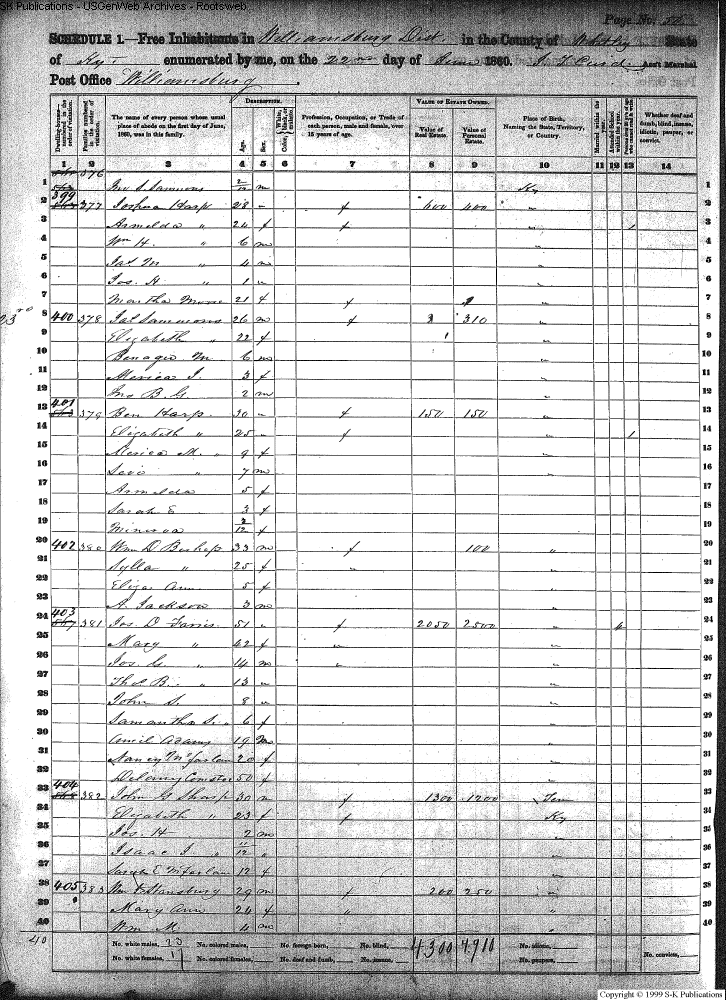 SK Publications - USGenWeb Archives - Rootsweb
Page No.
SCHEDULE 1.—Free Inhabitants in Williamsburg Dist. in the County of Whitley State
of Ky. enumerated by me, on the 22nd day of June 1860. Ass't Marshal
Post Office Williamsburg
DESCRIPTION. VALUE OF ESTATE OWNED.
Dwelling-houses numbered in the order of visitation. Families numbered in the order of visitation. The name of every person whose usual place of abode on the first day of June, 1860, was in this family. Age. Sex. Color, White, black, or mulatto. Profession, Occupation, or Trade of each person, male and female, over 15 years of age. Value of Real Estate. Value of Personal Estate. Place of Birth, Naming the State, Territory, or Country. Married within the year. Attended School within the year. Whether deaf and dumb, blind, insane, idiotic, pauper, or convict.
1 2 3 4 5 6 7 8 9 10 11 12 13 14
1 376 Jno S. Sammons 2/12 m Ky 1
2 399 377 Joshua Harp 28 " f 400 400 " 2
3 Armelda " 24 f f " 1 3
4 Wm H. " 6 m " 4
5 Jas M " 4 m " 5
6 Jos. H " 1 " " 6
7 Martha Moore 21 f f " 7
23rd
8 400 378 Jas Sammons 26 m f 310 " 8
9 Elizabeth " 22 f " 9
10 M. 6 m " 10
11 Merica J. 3 f " 11
12 Jno B. G. 2 m " 12
13 401 379 Ben Harp 30 " f 150 150 " 13
14 Elizabeth " 25 " f " 1 14
15 Merica M. " 9 f " 15
16 " 7 m " 16
17 Armelda 5 f " 17
18 Sarah E 3 f " 18
19 Minerva 2/12 f " 19
20 402 380 Wm D Bishop 33 m f 100 " 20
21 Sylla " 25 f " " 21
22 Eliza Ann 5 f " 22
23 A. Jackson 3 m " 23
24 403 381 Jos. D Faris 51 " f 2050 2500 " 24
25 Mary " 42 f " " 25
26 Jos. G. " 14 m " " 26
27 Thos B. " 13 " " 27
28 John S. 8 " " 28
29 Samantha S. " 6 f " 29
30 Adams 19 m " 30
31 Nancy McFarlan 20 f " 31
32 50 f " 32
33 404 382 John G Sharp 30 m f 1300 1200 Tenn 33
34 Elizabeth " 23 f f Ky 34
35 Jos. H 2 m " 35
36 Isaac J. " 11/12 " " 36
37 Sarah E McFarlan 12 f " 37
38 405 383 Wm Hansburg 29 m f 200 250 " 38
39 Mary Ann 24 f " " 39
40 Wm M. 4 m " 40
40 No. white males, 23 No. colored males, No. foreign born, No. blind, 4300 4910 No. idiotic,
No. white females, 17 No. colored females, No. deaf and dumb, No. insane, No. paupers, No. convicts,
Copyright © 1999 S-K Publications